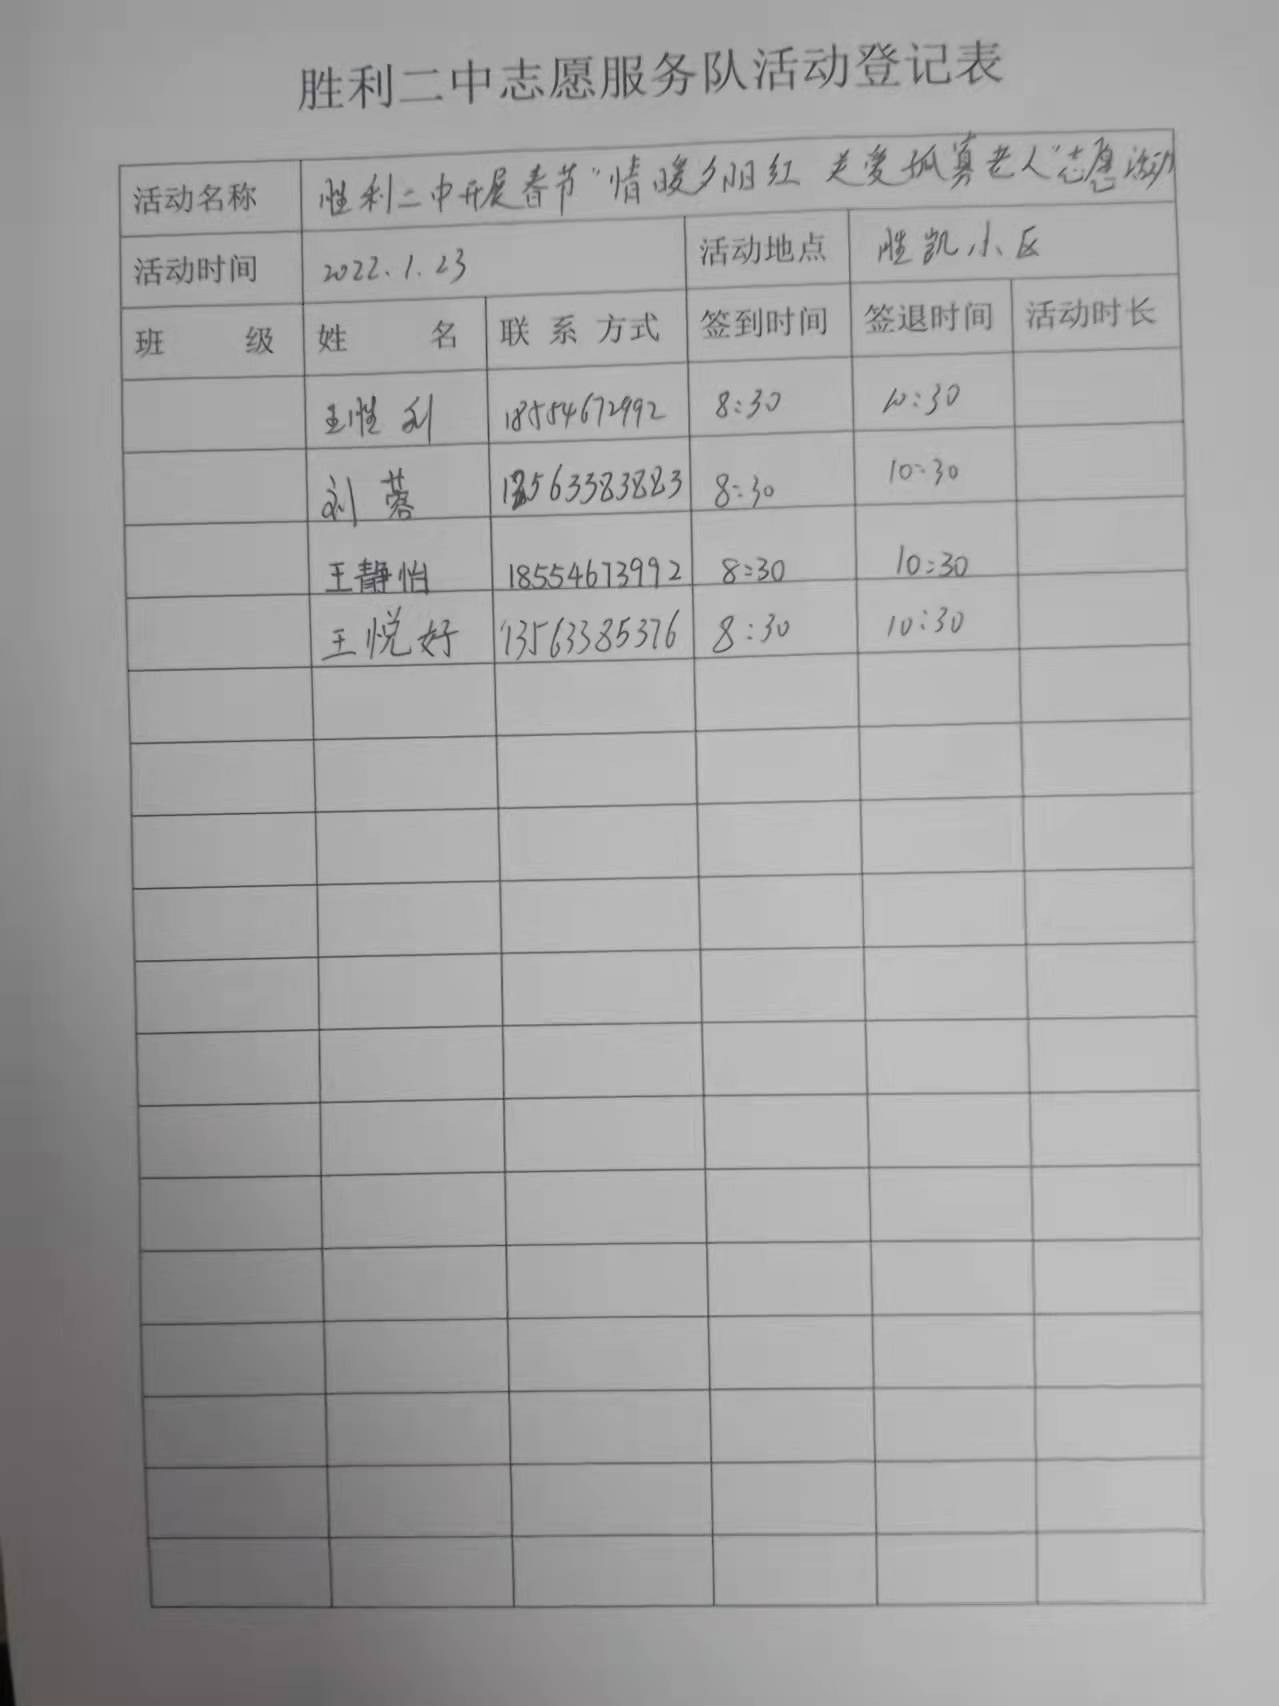 胜利二中志愿服务队活动登记表
活动名称 胜利二中开展春节"情暖夕阳红 关爱孤寡老人"志愿活动
活动时间 2022.1.23 活动地点 胜凯小区
班 级 姓 名 联 系 方式 签到时间 签退时间 活动时长
王胜利 18554672992 8:30 10:30
刘蓉 18563383883 8:30 10:30
王静怡 18554673992 8:30 10:30
王悦好 13563385376 8:30 10:30